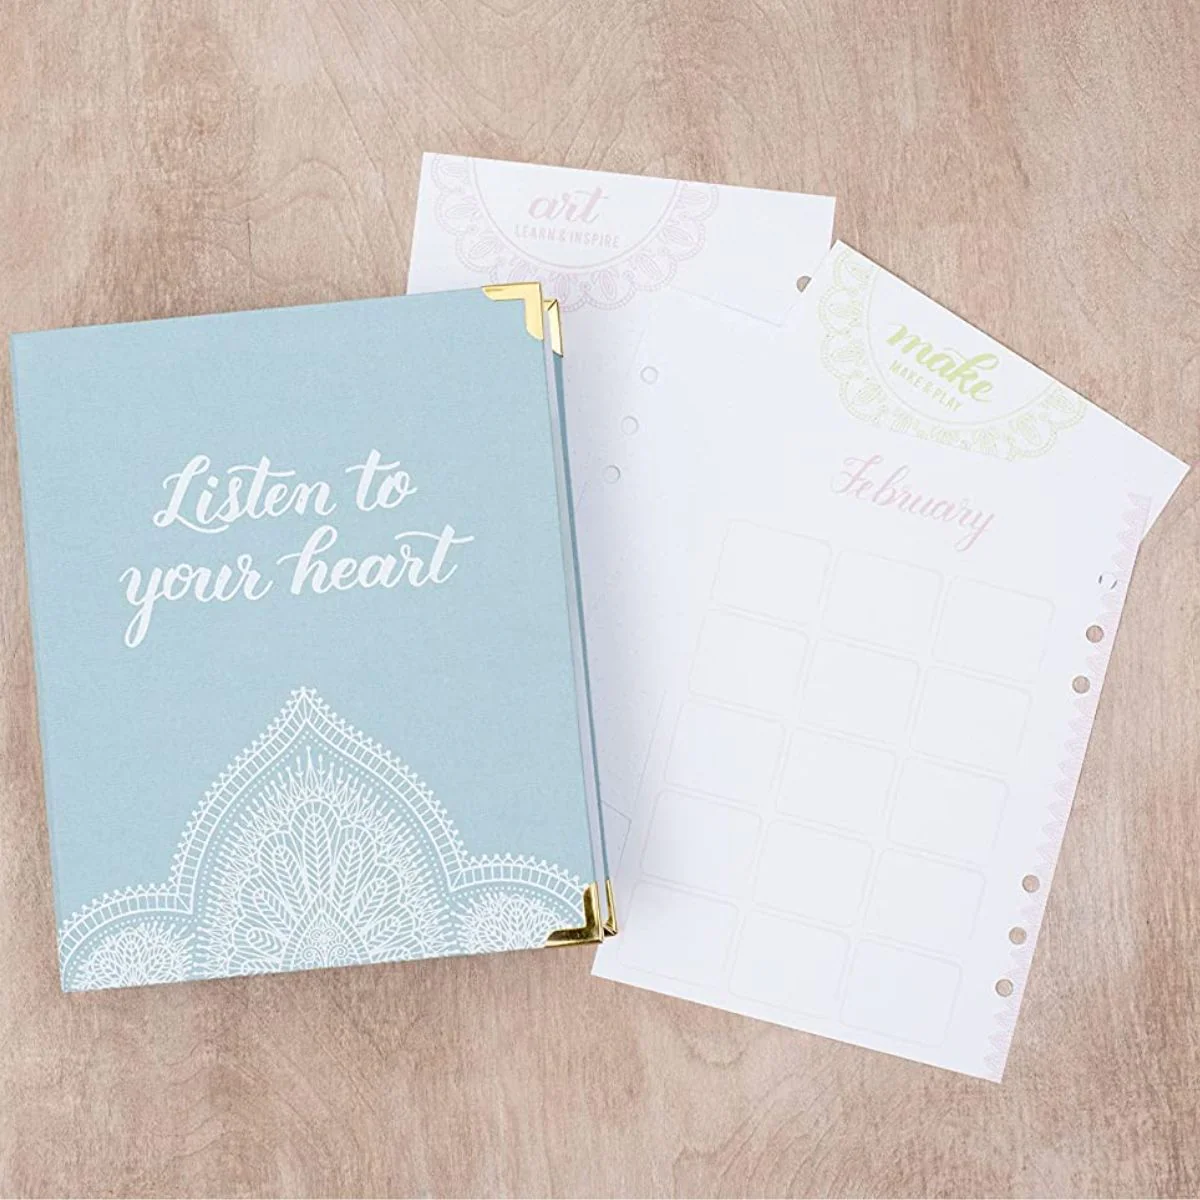 Listen to
your heart
art
LEARN & INSPIRE
make
MAKE & PLAY
February